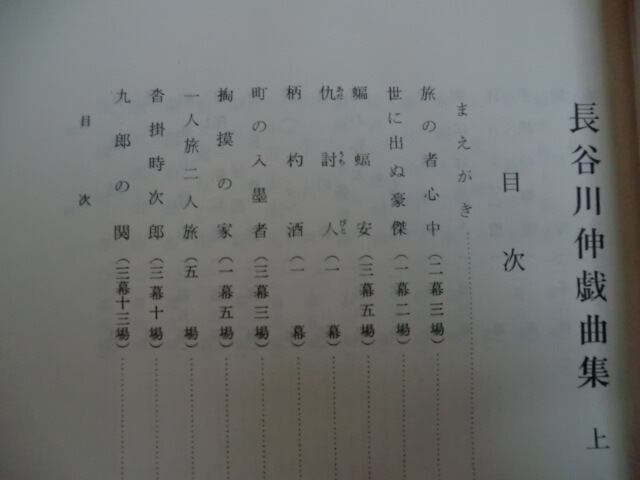 長谷川伸戯曲集 上
目次
まえがき
旅の者心中(二幕三場)
世に出ぬ豪傑(一幕二場)
蝙蝠安(三幕五場)
仇討人(一幕)
柄杓酒(一幕)
町の入墨者(三幕三場)
掏摸の家(一幕五場)
一人旅二人旅(五場)
沓掛時次郎(三幕十場)
九郎の関(三幕十三場)
目次